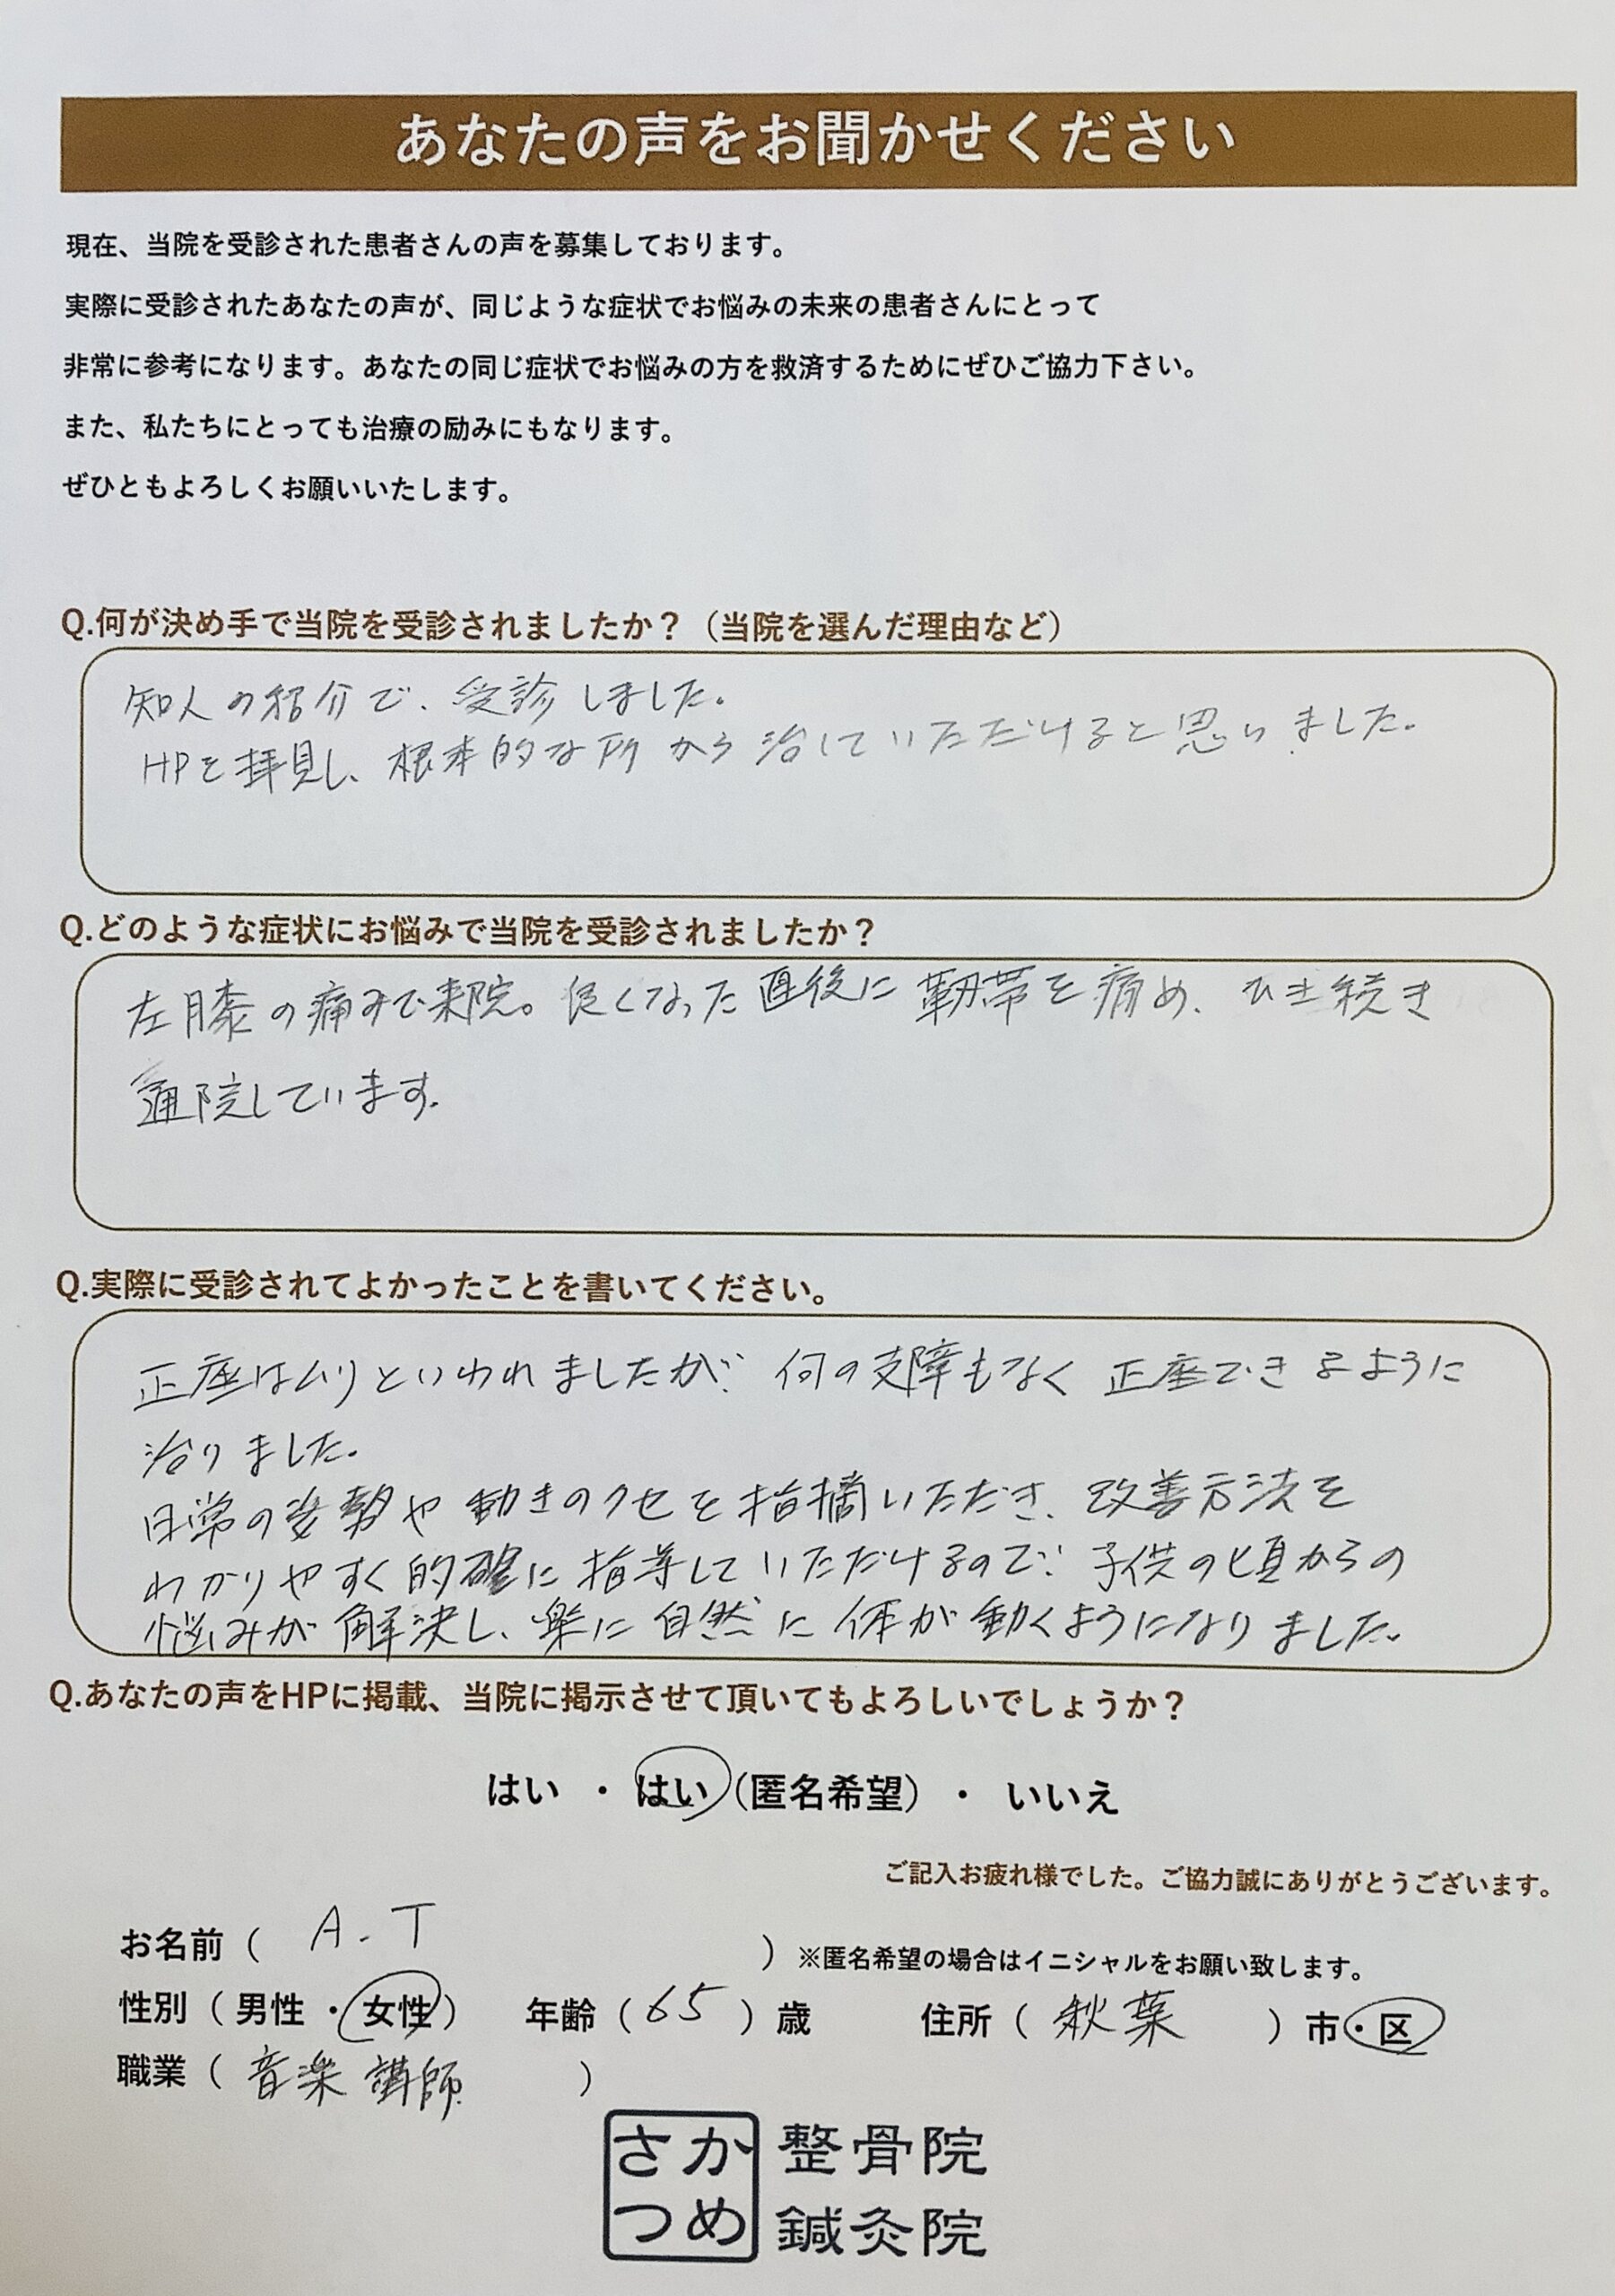 あなたの声をお聞かせください
現在、当院を受診された患者さんの声を募集しております。
実際に受診されたあなたの声が、同じような症状でお悩みの未来の患者さんにとって
非常に参考になります。あなたの同じ症状でお悩みの方を救済するためにぜひご協力下さい。
また、私たちにとっても治療の励みにもなります。
ぜひともよろしくお願いいたします。
Q.何が決め手で当院を受診されましたか？（当院を選んだ理由など）
知人の紹介で、受診しました。
HPを拝見し、根本的な所から治していただけると思いました。
Q.どのような症状にお悩みで当院を受診されましたか？
左膝の痛みで来院。良くなった直後に靭帯を痛め、ひき続き
通院しています。
Q.実際に受診されてよかったことを書いてください。
正座はムリといわれましたが、何の支障もなく正座できるように
治りました。
日常の姿勢や動きのクセを指摘いただき、改善方法を
わかりやすく的確に指導していただけるので、子供の頃からの
悩みが解決し、楽に自然に体が動くようになりました。
Q.あなたの声をHPに掲載、当院に掲示させて頂いてもよろしいでしょうか？
はい ・ はい（匿名希望） ・ いいえ
ご記入お疲れ様でした。ご協力誠にありがとうございます。
お名前（ A.T ）※匿名希望の場合はイニシャルをお願い致します。
性別（ 男性 ・ 女性 ） 年齢（ 65 ）歳 住所（ 秋葉 ）市・区
職業（ 音楽講師 ）
さか 整骨院
つめ 鍼灸院